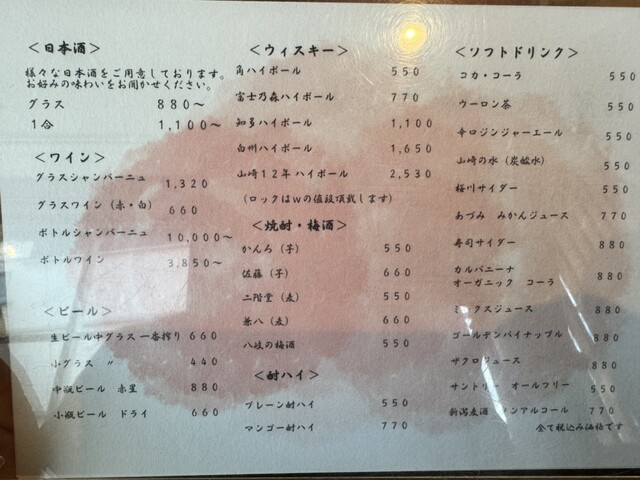 ＜日本酒＞
様々な日本酒をご用意しております。
お好みの味わいをお聞かせください。
グラス 880～
1合 1,100～
＜ワイン＞
グラスシャンパーニュ 1,320
グラスワイン(赤・白) 660
ボトルシャンパーニュ 10,000～
ボトルワイン 3,850～
＜ビール＞
生ビール中グラス一番搾り 660
小グラス 〃 440
中瓶ビール 赤星 880
小瓶ビール ドライ 660
＜ウィスキー＞
角ハイボール 550
富士乃森ハイボール 770
知多ハイボール 1,100
白州ハイボール 1,650
山崎12年ハイボール 2,530
(ロックはwの値段頂戴します)
＜焼酎・梅酒＞
かんろ(芋) 550
佐藤(芋) 660
二階堂(麦) 550
兼八(麦) 660
八岐の梅酒 550
＜酎ハイ＞
プレーン酎ハイ 550
マンゴー酎ハイ 770
＜ソフトドリンク＞
コカ・コーラ 550
ウーロン茶 550
辛口ジンジャーエール 550
山崎の水(炭酸水) 550
桜川サイダー 550
あづみ みかんジュース 770
寿司サイダー 880
カルパニーナ
オーガニック コーラ 880
ミックスジュース 880
ゴールデンパイナップル 880
ザクロジュース 880
サントリー オールフリー 550
新潟麦酒 ノンアルコール 770
全て税込み価格です